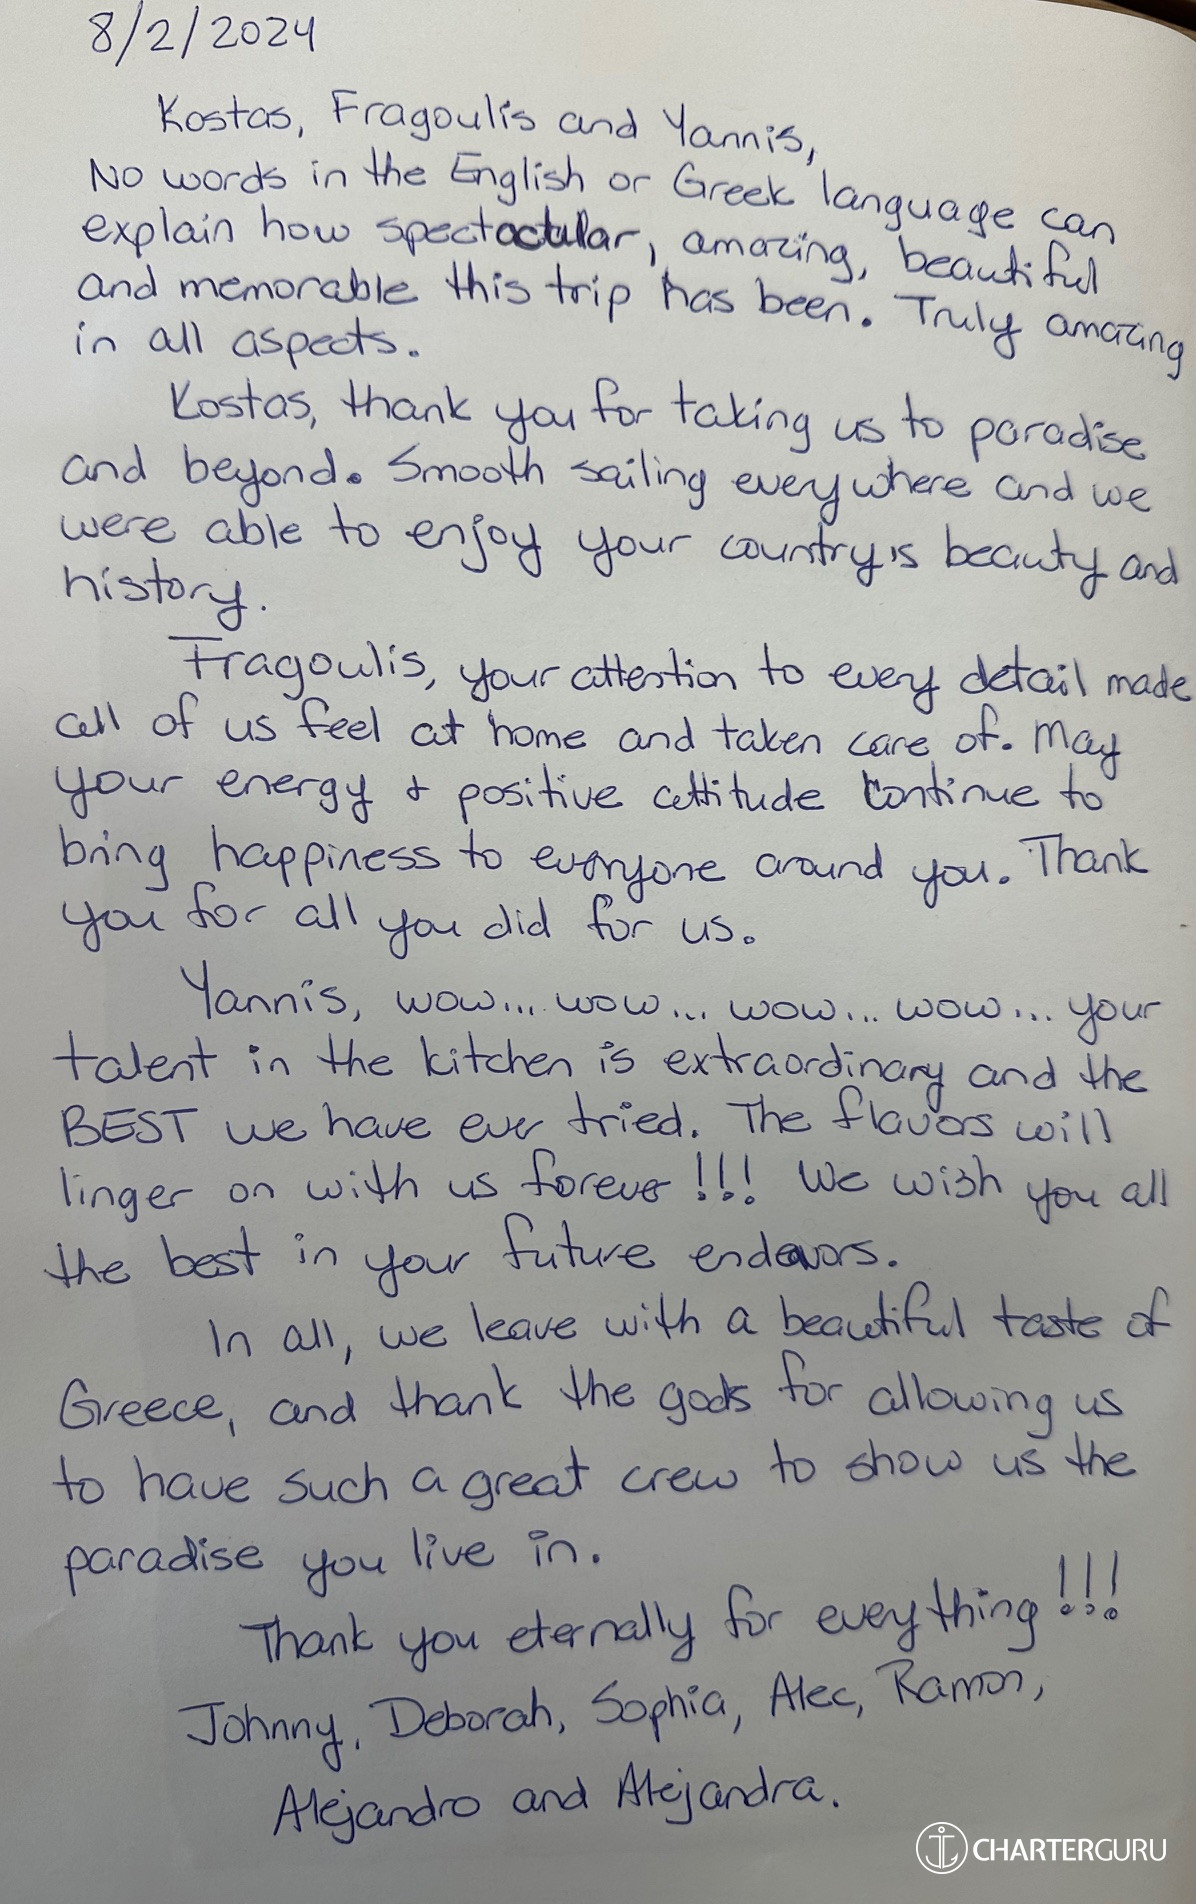 8/2/2024
Kostas, Fragoulis and Yannis,
No words in the English or Greek language can
explain how spectactular, amazing, beautiful
and memorable this trip has been. Truly amazing
in all aspects.
Kostas, thank you for taking us to paradise
and beyond. Smooth sailing everywhere and we
were able to enjoy your country's beauty and
history.
Fragoulis, your attention to every detail made
all of us feel at home and taken care of. May
your energy + positive attitude continue to
bring happiness to everyone around you. Thank
you for all you did for us.
Yannis, wow... wow... wow... wow... your
talent in the kitchen is extraordinary and the
BEST we have ever tried. The flavors will
linger on with us forever!!! We wish you all
the best in your future endeavors.
In all, we leave with a beautiful taste of
Greece, and thank the gods for allowing us
to have such a great crew to show us the
paradise you live in.
Thank you eternally for eveything!!!
Johnny, Deborah, Sophia, Alec, Ramon,
Alejandro and Alejandra.
CHARTERGURU